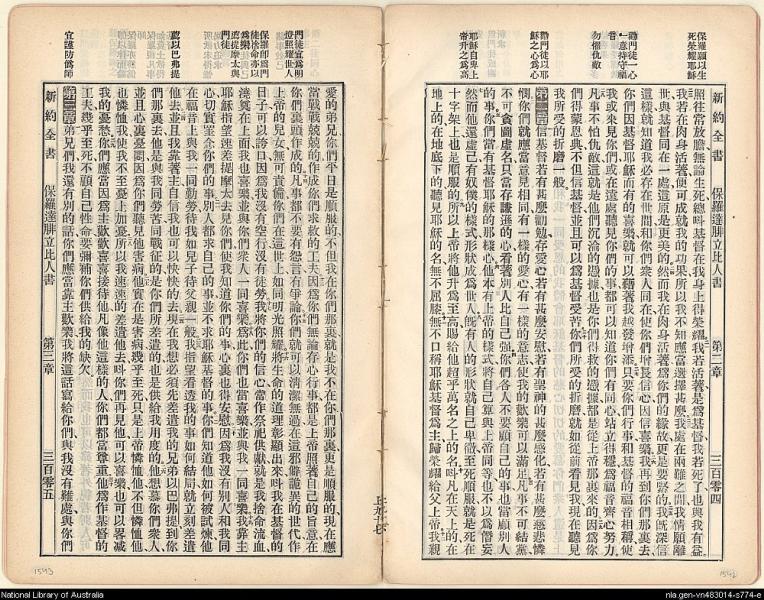 保羅願以生
死榮耀耶穌
勸門徒一心
一意持守福
音
勿懼仇敵
勸門徒以耶
穌之心為心
耶穌自卑上
帝升之為高
新約全書 保羅達腓立比人書 第二章 三百零四
照往常放膽無論生死總叫基督在我身上得榮耀我若活著是爲基督我若死了也與我有益
我若在肉身活著便可成就我的功果所以我不知應當選擇甚麽我處在兩難之間我情願離
世與基督同在一處這原是更美的然而我在肉身活著爲你們的緣故更是要緊的我旣深信
這樣就知道我必存在世間和你們衆人同在使你們增長信心因信喜樂我再到你們那裏去
你們因基督耶穌而有的喜樂就可以藉著我越發增添只要你們行事和基督的福音相稱使
我或來見你們或在遠處聽見你們的事都可以知道你們有同心站立得穩爲福音齊心努力
凡事不怕仇敵這就是他們沉淪的憑據也是你們得救的憑據都是從上帝那裏來的因爲你
們得蒙恩典不但信基督並且可以爲基督受苦你們所受的折磨就如從前看見我現在聽見
我所受的折磨一般
第二章 信基督若有甚麽勸勉存愛心若有甚麽安慰若有聖神的甚麽感化若有甚麽慈悲憐
憫你們就應當意見相同有一樣的愛心有一樣的意志使我的歡樂可以滿足凡事不可結黨
不可貪圖虛名只當存謙遜的心看著別人比自己强你們各人不要顧自己的事也當顧別人
的事你們當有基督耶穌的那樣心他本有上帝的樣式將自己算與上帝同等也不以爲僭妄
然而他還虛己有奴僕的樣式形狀成爲世人旣有人的形狀就自己卑微至死順服就是死在
十字架上也是順服的所以上帝將他升爲至高賜給他超乎萬名之上的名叫凡在天上的在
地上的在地底下的聽見耶穌的名無不屈膝無不口稱耶穌基督爲主歸榮耀給父上帝我親
門徒宜爲明
燈照耀世人
保羅卽爲門
徒捨命亦以
爲樂
遣提摩太與
門徒
遣以巴弗提
宜謹防僞師
愛的弟兄你們平日是順服的不但我在你們那裏就是我不在你們那裏更是順服的現在應
當戰戰兢兢的作成你們求救的工夫因爲你們無論存心行事都是上帝照著自己的旨意在
你們裏頭作成的凡事都不要有怨言有爭論你們就可以淸潔無過在這邪僻詭異的世代作
上帝的兒女無可責備你們在這世上如同明光照耀將生命的道理彰顯出來叫我在基督的
日子可以誇口因爲我沒有空行沒有徒勞我將你們的信心當作祭祀供獻就是我捨命流血
澆奠在上面我也喜樂並與你們衆人一同喜樂爲此你們也當喜樂並與我一同喜樂我靠主
耶穌指望速差提摩太去見你們使我知道你們的事心裏也得安慰因爲我沒有別人和我同
心切實罣念你們的事別人都求自己的事並不求耶穌基督的事你們知道他如何被試煉他
在福音上與我一同勤勞待我如兒子待父親一般我指望看透我的事如何結局就立刻差遣
他去並且我靠著主自信我也可以快快的去現在我想必須先差遣我的兄弟以巴弗提到你
們那裏去他是與我同勞苦同戰征的是你們所差遣的也是供給我用度的他想慕你們衆人
並且心裏憂悶因爲你們聽見他害病他實在是害病幾乎至死只是上帝憐恤他不但憐恤他
也憐恤我使我不至憂上加憂所以我速速的差遣他去叫你們再見他可以喜樂也可以畧減
我的憂愁你們應當因爲主歡歡喜喜接待他凡像他這樣的人你們都當尊重他爲作基督的
工夫幾乎至死不顧自己性命要彌補你們供給我的缺欠
第三章 弟兄們我還有別的話你們應當靠主歡樂我將這話寫給你們與我沒有難處與你們
新約全書 保羅達腓立比人書 第三章 三百零五
1543
1542
National Library of Australia
nla.gen-vn483014-s774-e